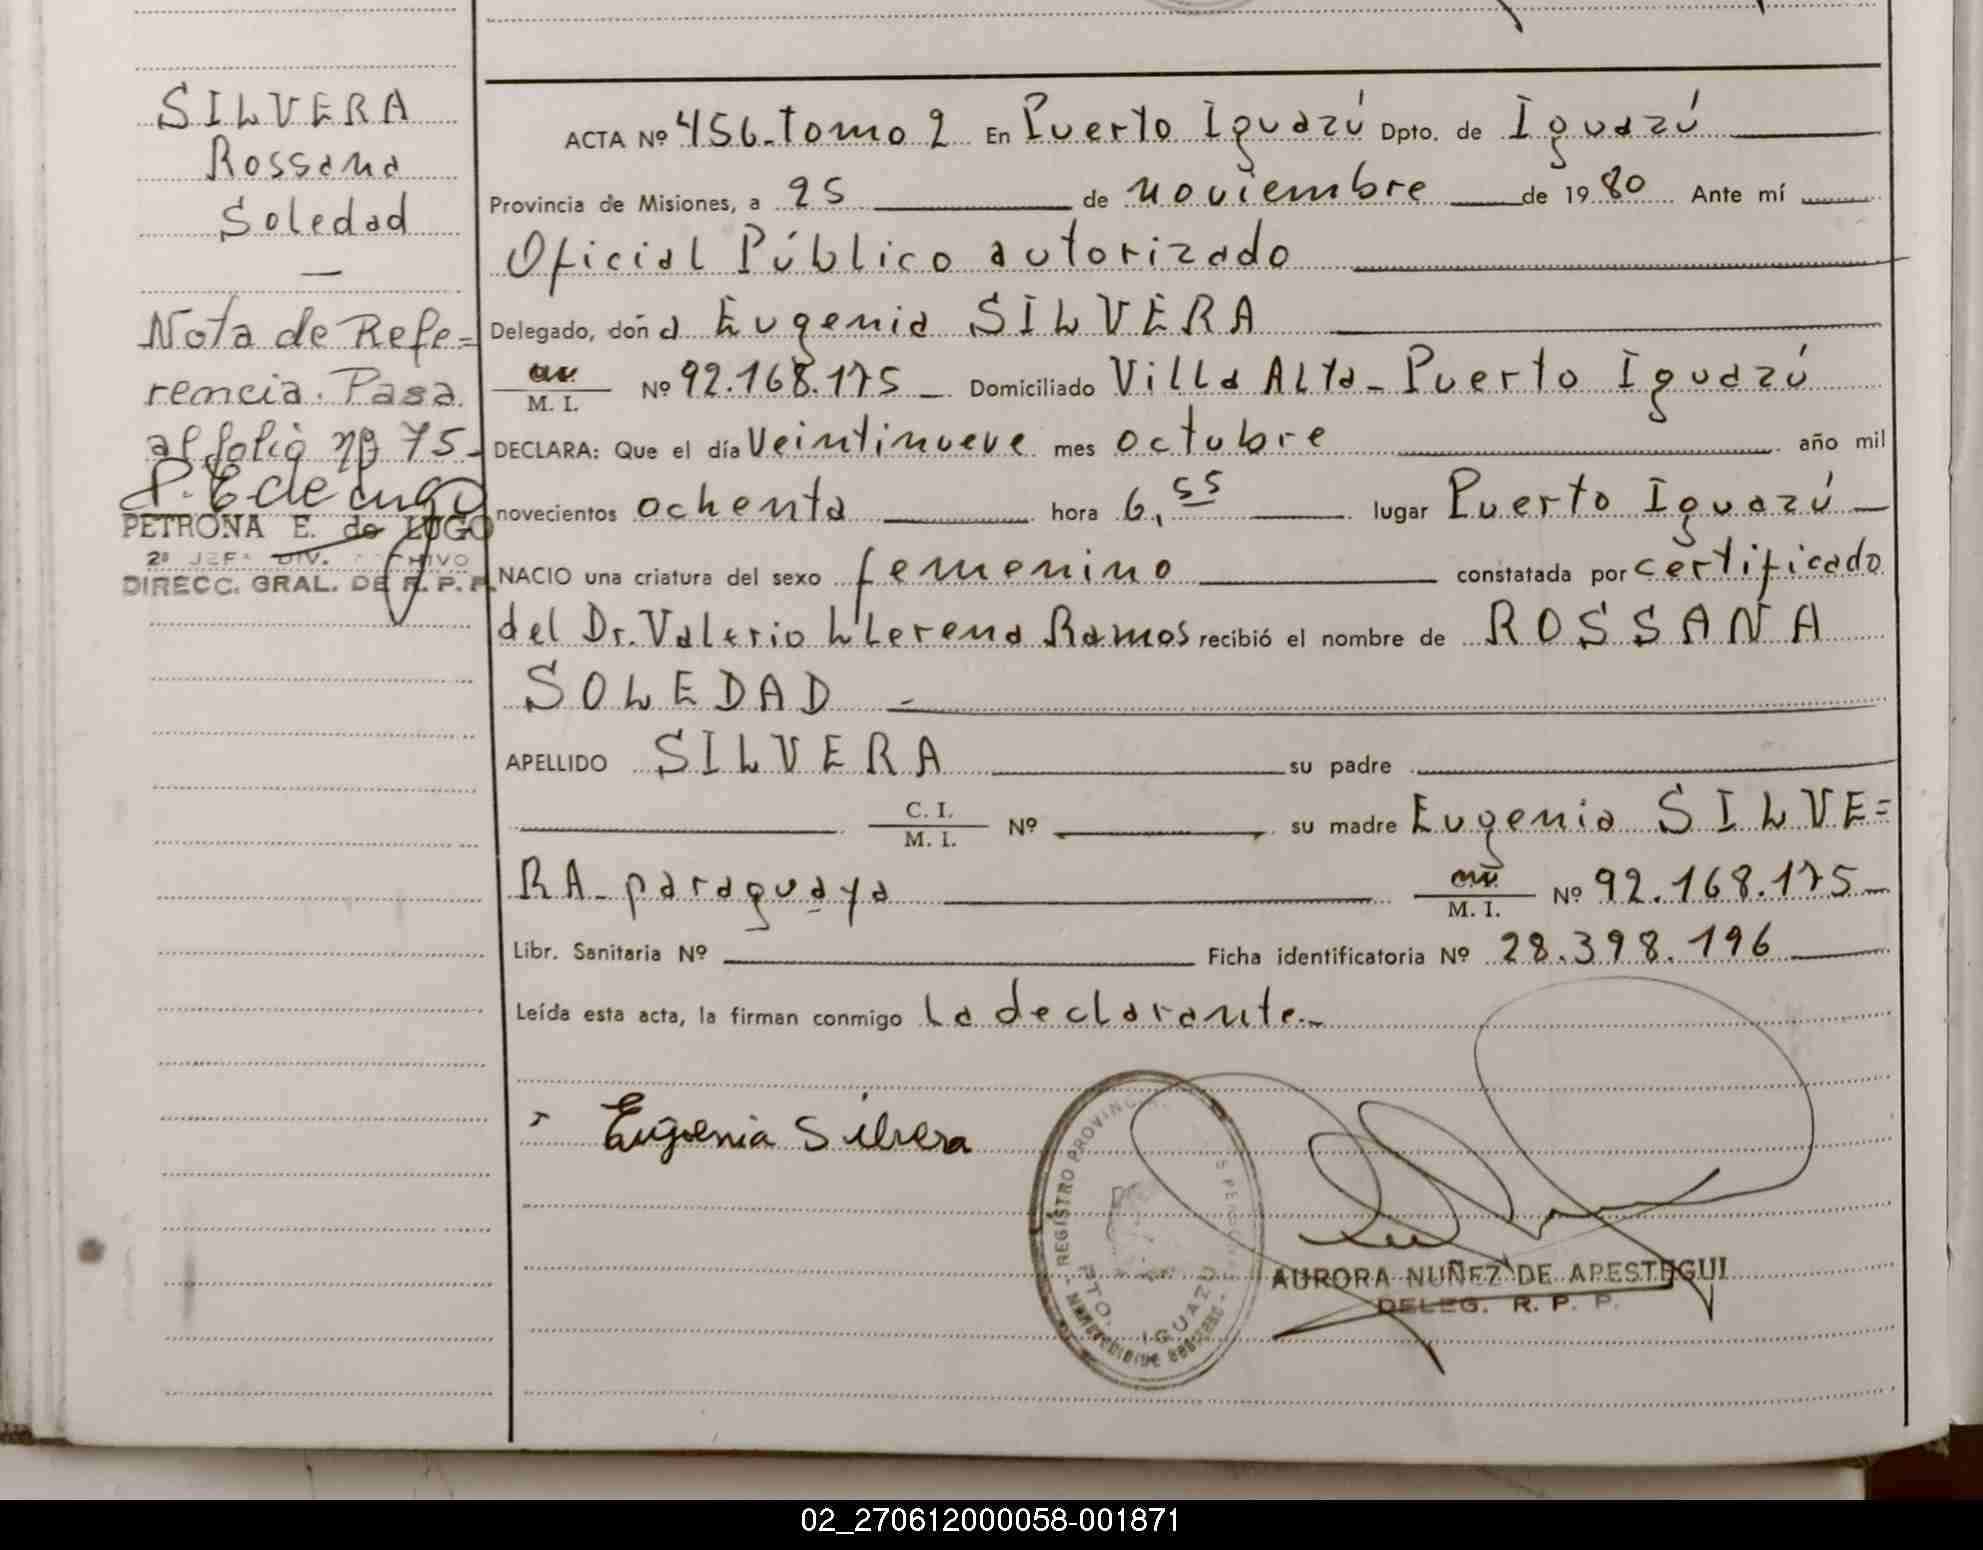 SILVERA
Rossana
Soledad
—
Nota de Refe=
rencia. Pasa
al folio nº 75-
P. E de Lugo
PETRONA E. de LUGO
2ª JEFA DIV. ARCHIVO
DIRECC. GRAL. DE R. P. P.
ACTA Nº 456-Tomo 2 En Puerto Iguazú Dpto. de Iguazú
Provincia de Misiones, a 25 de noviembre de 1980 Ante mí
Oficial Público autorizado
Delegado, doña Eugenia SILVERA
M. I. Nº 92.168.175 - Domiciliado Villa Alta - Puerto Iguazú
DECLARA: Que el día Veintinueve mes octubre año mil
novecientos ochenta hora 6,55 lugar Puerto Iguazú -
NACIO una criatura del sexo femenino constatada por certificado
del Dr. Valerio Llerena Ramos recibió el nombre de ROSSANA
SOLEDAD -
APELLIDO SILVERA su padre
C. I.
M. I. Nº su madre Eugenia SILVE=
RA - paraguaya M. I. Nº 92.168.175 -
Libr. Sanitaria Nº Ficha identificatoria Nº 28.398.196
Leída esta acta, la firman conmigo la declarante.-
Eugenia Silvera
REGISTRO PROVINCIAL
PTO. IGUAZU
AURORA NUÑEZ DE APESTEGUI
DELEG. R. P. P.
02_270612000058-001871